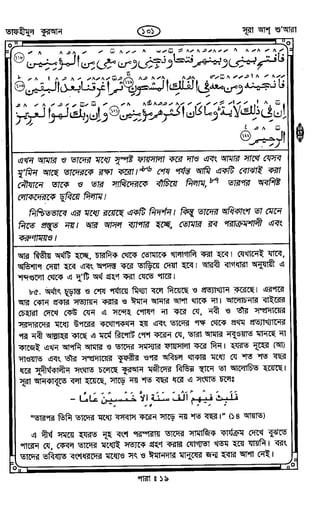 তাফহীমুল কুরআন
১০১
সূরা আশ শু'আরা
فَافْتَحْ بَيْنِي وَبَيْنَهُمْ فَتْحًا وَنَجِّنِي وَمَنْ مَعِيَ مِنَ الْمُؤْمِنِينَ
فَأَنْجَيْنَهُ وَمَنْ مَعَهُ فِي الْفُلْكِ الْمَشْحُونِ ثُمَّ أَغْرَقْنَا بَعْدُ الْبَقِينَ
إِنَّ فِي ذَلِكَ لَآيَةً وَمَا كَانَ أَكْثَرُهُمْ مُؤْمِنِينَ وَإِنَّ رَبَّكَ لَهُوَ الْعَزِيزُ
الرَّحِيمُ
এখন আমার ও তাদের মধ্যে সুস্পষ্ট ফায়সালা করে দাও এবং আমার সাথে যেসব
মু'মিন আছে তাদেরকে রক্ষা করো। শেষ পর্যন্ত আমি একটি বোঝাই করা
নৌযানে তাকে ও তার সাথিদেরকে বাঁচিয়ে নিলাম, তারপর অবশিষ্ট
লোকদেরকে ডুবিয়ে দিলাম।
নিশ্চিতভাবে এর মধ্যে রয়েছে একটি নিদর্শন। কিন্তু তাদের অধিকাংশ তা মেনে
নিতে প্রস্তুত নয়। আর আসল ব্যাপার হচ্ছে, তোমার রব পরাক্রমশালী এবং
করুণাময়ও।
আর দ্বিতীয় অর্থটি হচ্ছে, চারদিক থেকে তোমাকে গালাগালি করা হবে। যেখানেই যাবে,
অভিশাপ দেয়া হবে এবং অপদস্থ করে তাড়িয়ে দেয়া হবে। আরবী বাগধারা অনুযায়ী এ
শব্দগুলো থেকে এ দু'টি অর্থ গ্রহণ করা যেতে পারে।
৮৫. অর্থাৎ চূড়ান্ত ও শেষ পর্যায়ে মিথ্যা বলে দিয়েছে ও প্রত্যাখ্যান করেছে। এরপরে
আর কোন প্রকার সত্যায়ন করার ও ঈমান আনার আশা থাকে না। আলোচনার বাইরের
চেহারা দেখে কেউ যেন এ সন্দেহ পোষণ না করে যে, নবী ও জাতির সম্প্রদায়ের
সরদারদের মধ্যে উপরের কথোপকথন হয় এবং তাদের পক্ষ থেকে প্রথম প্রত্যাখ্যানের
পর নবী আল্লাহর কাছে এ মর্মে রিপোর্ট পেশ করেন যে, তারা আমার নবুওয়াত মানছে না
কাজেই এখন আপনি আমার ও তাদের সমস্যার ফায়সালা করে দিন। হযরত নূহের (আ)
দাওয়াত এবং তাঁর সম্প্রদায়ের কুফরীর ওপর অবিচল থাকার মধ্যে যে শত শত বছর
ধরে সুদীর্ঘকালীন সংঘাত চলেছে কুরআন মজীদের বিভিন্ন স্থানে তা আলোচিত হয়েছে।
সূরা আনকাবুতে বলা হয়েছে, সাড়ে নয় শত বছর ধরে এ সংঘাত চলেঃ
فَلَبِثَ فِيهِمْ أَلْفَ سَنَةٍ إِلَّا خَمْسِينَ عَامًا -
"তারপর তিনি তাদের মধ্যে বসবাস করেন সাড়ে নয় শত বছর।" (১৪ আয়াত)
এ দীর্ঘ সময়ে হযরত নূহ বংশ পরস্পরায় তাদের সামাজিক কার্যক্রম দেখে বুঝতে
পারেন যে, কেবল তাদের মধ্যেই সত্যকে গ্রহণ করার যোগ্যতা খতম হয়ে যায়নি। বরং
তাদের ভবিষ্যত বংশধরদের মধ্যেও সৎ ও ঈমানদার মানুষের জন্ম হবার আশা নেই।
পারা ঃ ১৯